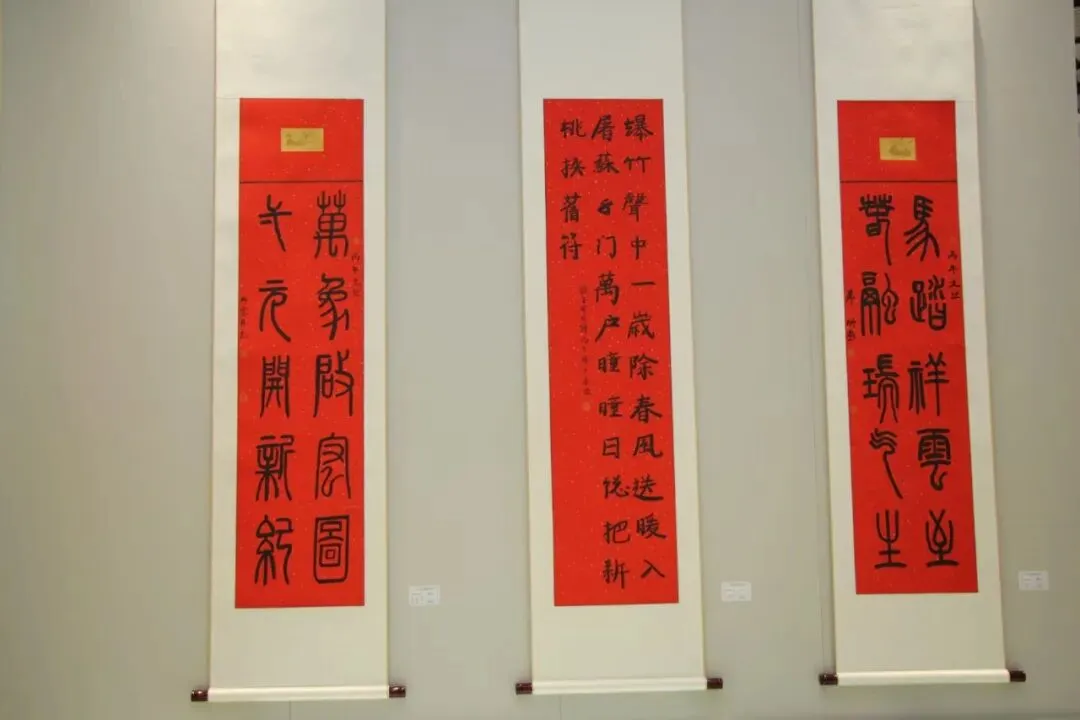 馬踏祥雲至
丙午元旦
春融瑞气生
爆竹聲中一歲除春風送暖入
屠蘇千门萬户曈曈日總把新
桃换舊符
萬象啟宏圖
丙午元旦
弌元開新紀